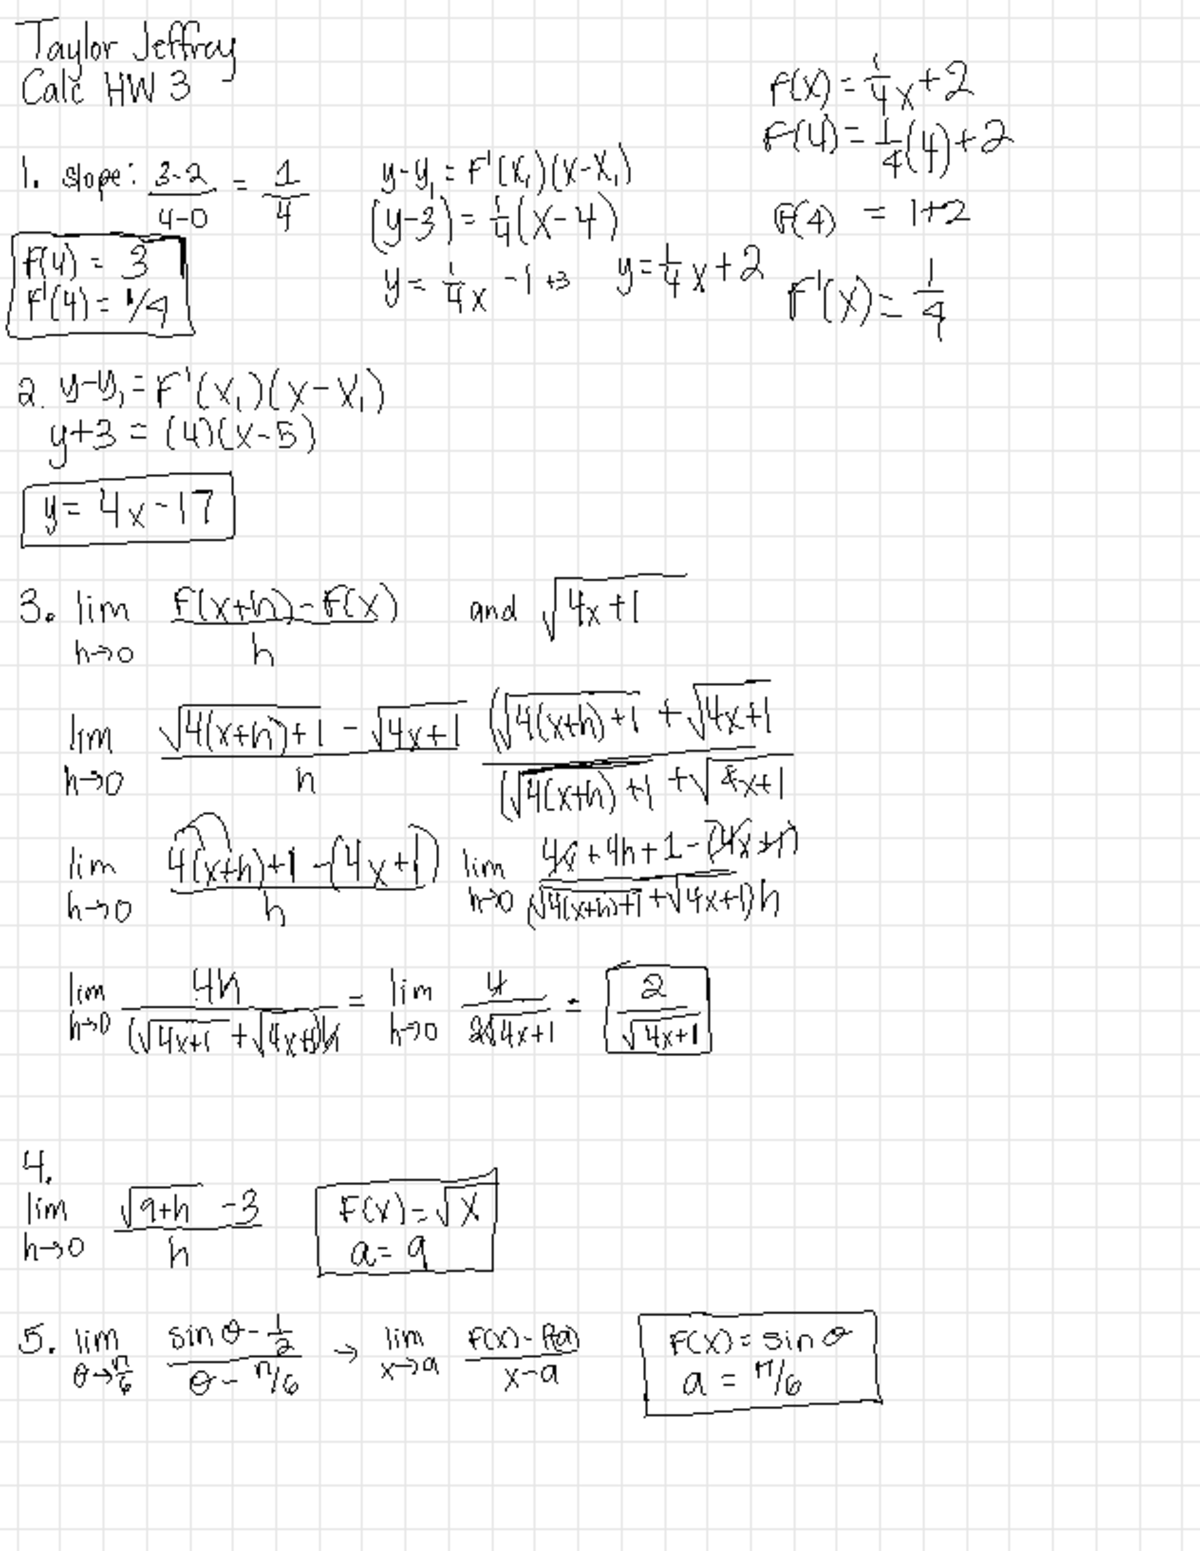 Taylor Jeffrey
Calc HW 3
1. slope: (3-2)/(4-0) = 1/4
F(4) = 3
F'(4) = 1/4
y-y₁ = F'(x₁)(x-x₁)
(y-3) = 1/4(x-4)
y = 1/4x -1 +3 y = 1/4x+2
F(x) = 1/4x+2
F(4) = 1/4(4)+2
F(4) = 1+2
F'(x) = 1/4
2. y-y₁ = F'(x₁)(x-x₁)
y+3 = (4)(x-5)
y = 4x-17
3. lim h→0 (F(x+h)-F(x))/h and √(4x+1)
lim h→0 (√(4(x+h)+1) - √(4x+1))/h (√(4(x+h)+1) + √(4x+1))/(√(4(x+h)+1) + √(4x+1))
lim h→0 (4(x+h)+1-(4x+1))/h lim h→0 (4x+4h+1-(4x+1))/((√(4(x+h)+1)+√(4x+1))h)
lim h→0 4h/((√(4x+1)+√(4x+1))h) = lim h→0 4/(2√(4x+1)) = 2/√(4x+1)
4.
lim h→0 (√(9+h) -3)/h F(x)=√x
a = 9
5. lim θ→π/6 (sin θ - 1/2)/(θ - π/6) → lim x→a (F(x)-F(a))/(x-a) F(x) = sin θ
a = π/6